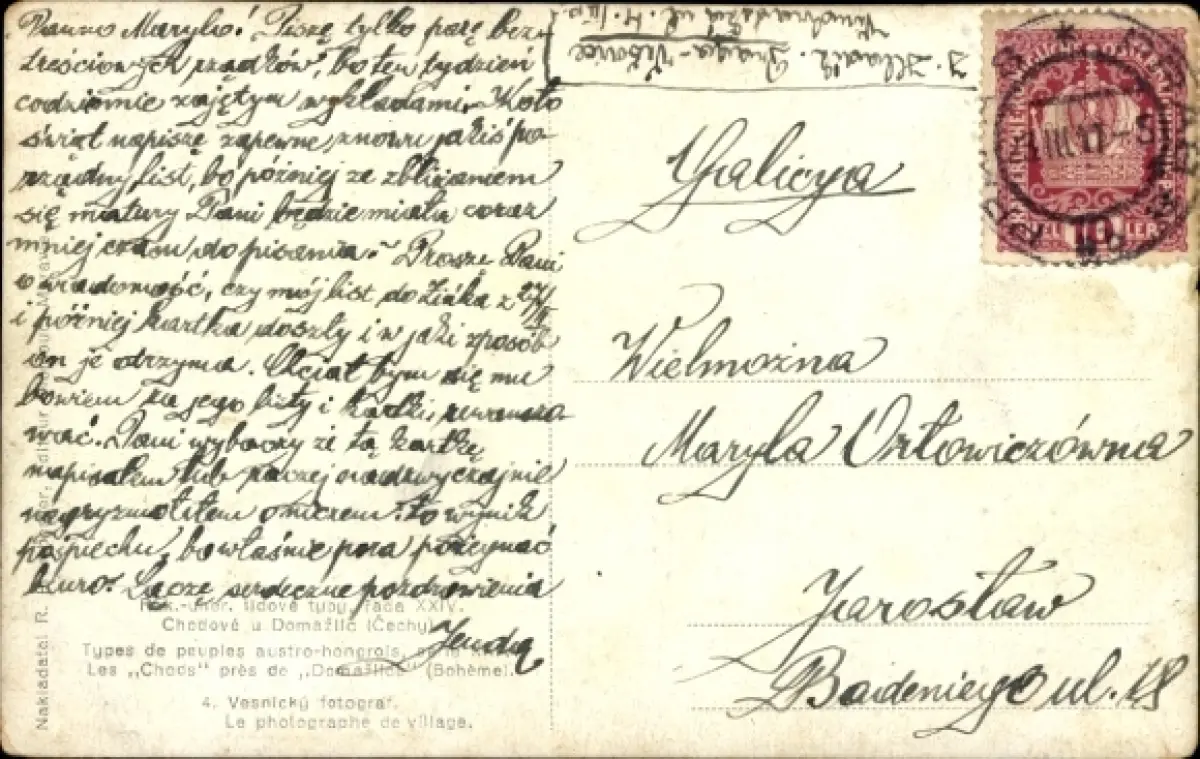 Panno Marylo! Piszę tylko parę bez-
treściowych rządków, bo ten tydzień
codziennie zajętym wykładami. Koło
świąt napiszę zapewne znowu jakiś po-
rządny list, bo później ze zbliżaniem
się matury Pani będzie miała coraz
mniej czasu do pisania. Proszę Pani
o wiadomość, czy mój list do Zińka z 27/II
i później kartka doszły i w jaki sposób
on je otrzyma. Chciał bym się mu
bowiem za jego listy i kartki zrewanżo-
wać. Pani wybaczy że tą kartkę
napisałem lub raczej nadzwyczajnie
nagryzmoliłem ołówkiem: to wynik
pośpiechu, bo właśnie pora pożegnać
biuro. Łączę serdeczne pozdrowienia
Rak.-uher. lidové typy, řada XXIV.
Chodové u Domažlic (Čechy)
Types de peuples austro-hongrois,
Les „Chods" près de „Domažlice" (Bohême).
4. Vesnický fotograf.
Le photographe de village.
Nakladatel R.
J. Hladík. Praga-Vršovice
Galicya
Wielmożna
Maryla Orłowiczówna
Jarosław
Badeniego ul. 18
10